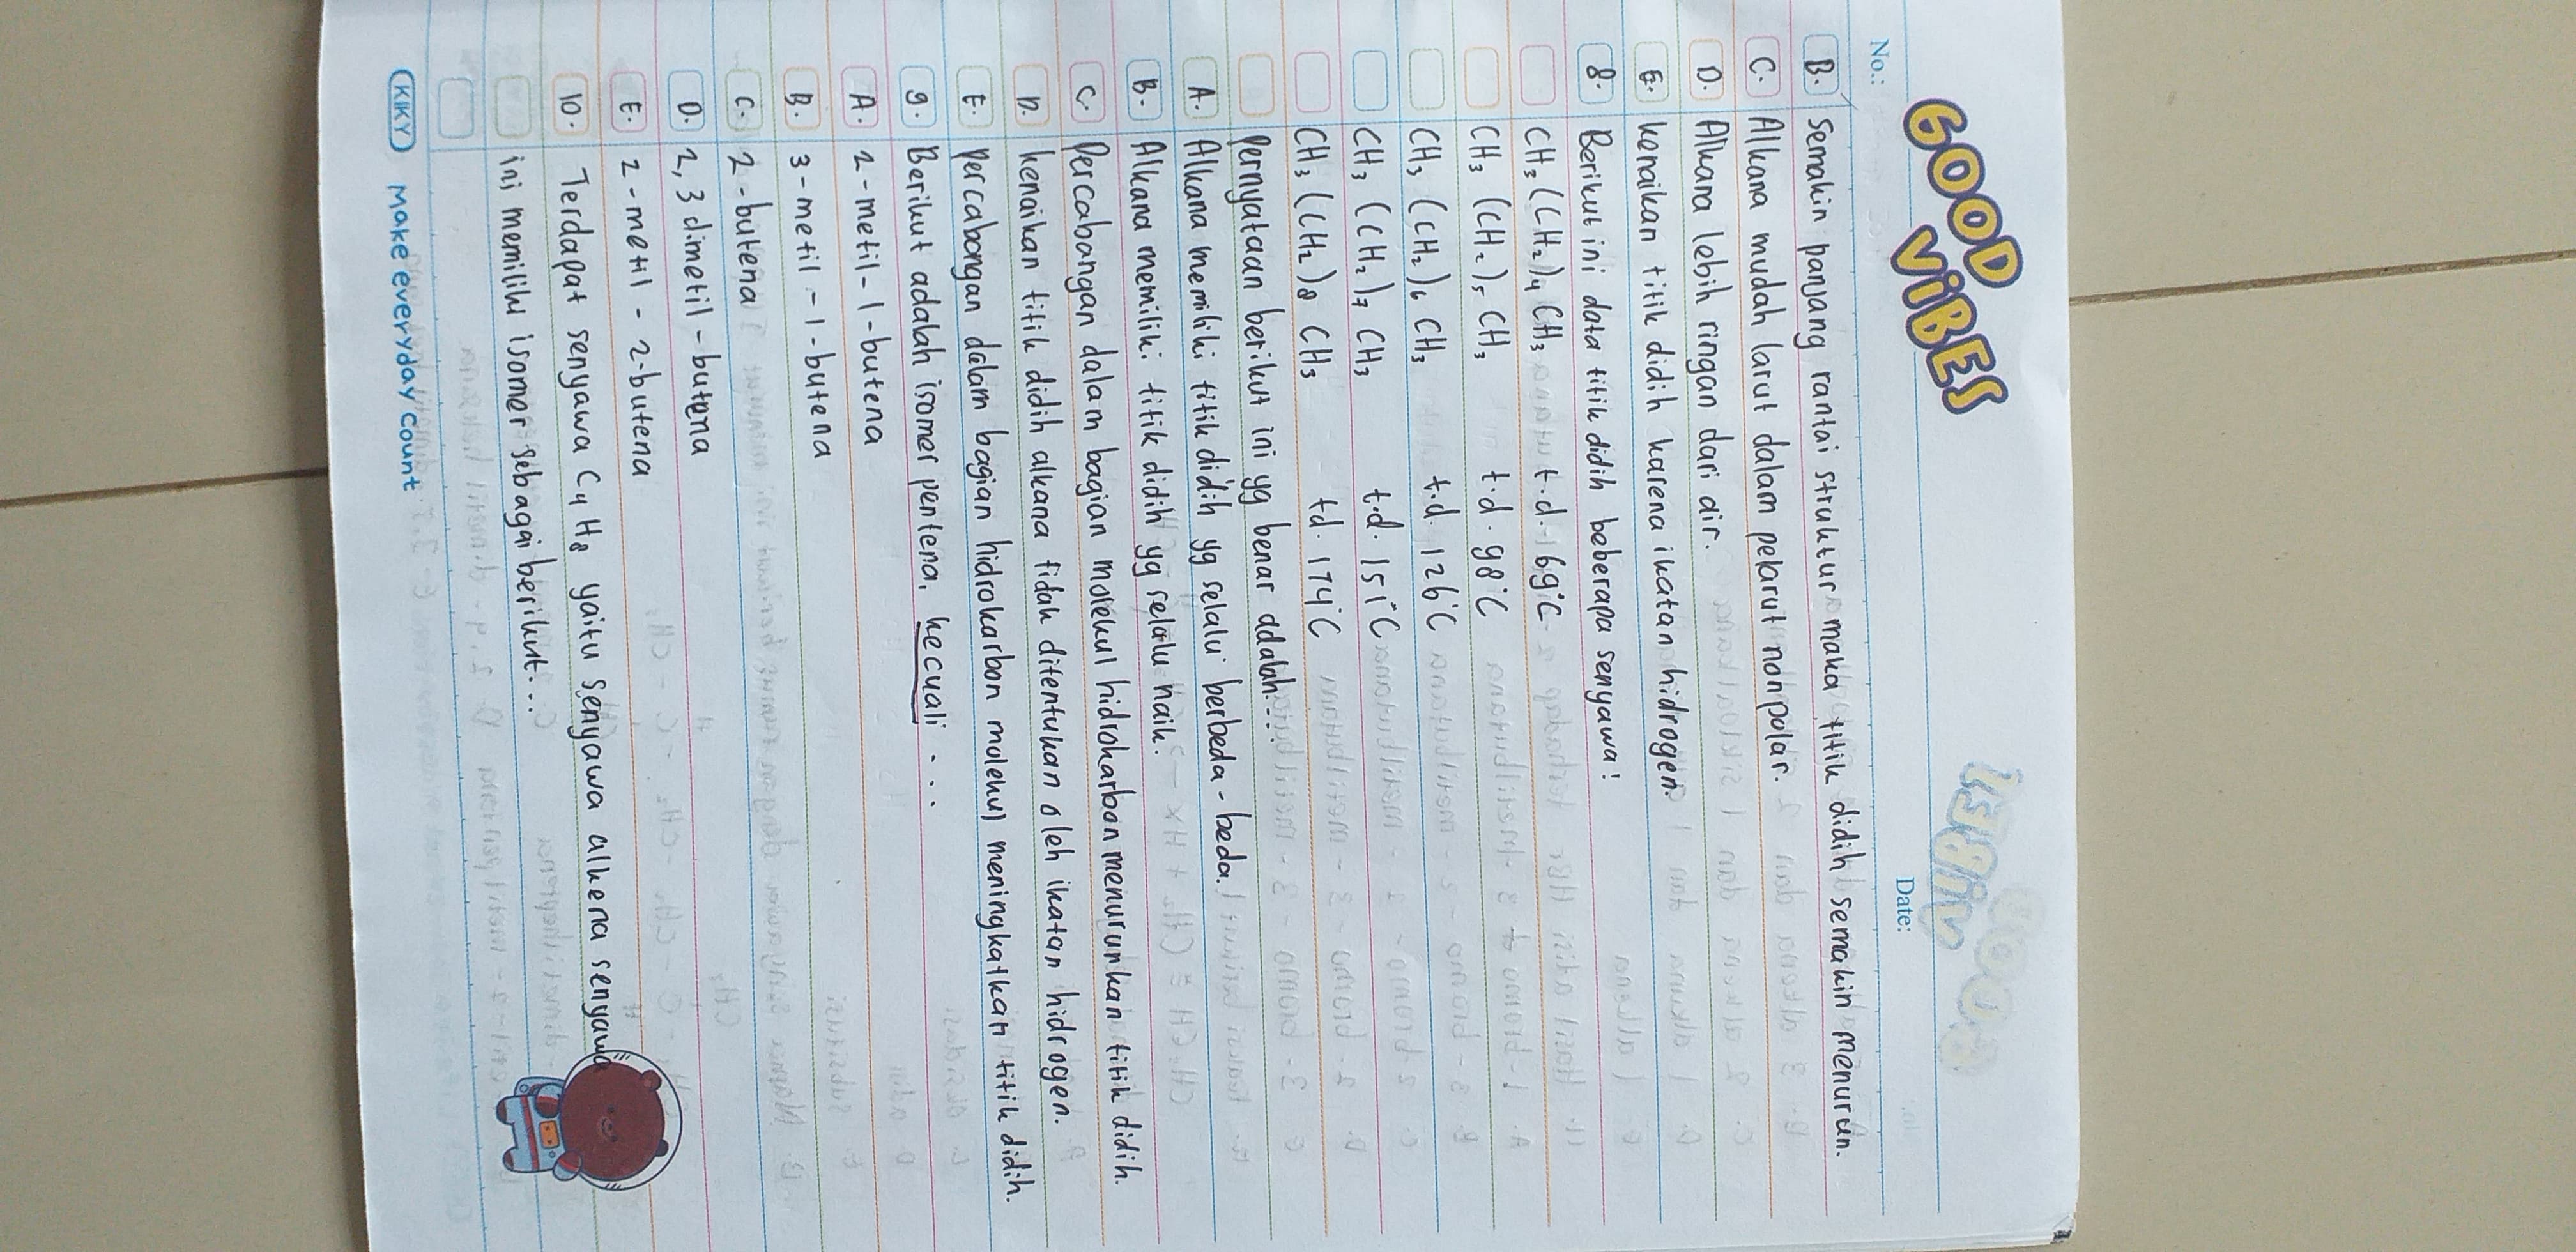 GOOD
ViBES
No.:
Date:
B. Semakin panjang rantai struktur maka titik didih semakin menurun.
C. Alkana mudah larut dalam pelarut nonpolar.
D. Alkana lebih ringan dari air.
E. kenaikan titik didih karena ikatan hidrogen.
8. Berikut ini data titik didih beberapa senyawa!
CH₃ (CH₂)₄ CH₃ t.d. 69°C
CH₃ (CH₂)₅ CH₃ t.d. 98°C
CH₃ (CH₂)₆ CH₃ t.d. 126°C
CH₃ (CH₂)₇ CH₃ t.d. 151°C
CH₃ (CH₂)₈ CH₃ td. 174°C
pernyataan berikut ini yg benar adalah...
A. Alkana memiliki titik didih yg selalu berbeda-beda.
B. Alkana memiliki titik didih yg selalu naik.
C. Percabangan dalam bagian molekul hidrokarbon menurunkan titik didih.
D. kenaikan titik didih alkana tidak ditentukan oleh ikatan hidrogen.
E. percabangan dalam bagian hidrokarbon molekul meningkatkan titik didih.
9. Berikut adalah isomer pentena, kecuali ...
A. 2-metil-1-butena
B. 3-metil-1-butena
C. 2-butena
D. 2,3 dimetil-butena
E. 2-metil-2-butena
10. Terdapat senyawa C₄H₈ yaitu senyawa alkena senyawa
ini memiliki isomer sebagai berikut...
KIKY Make everyday count